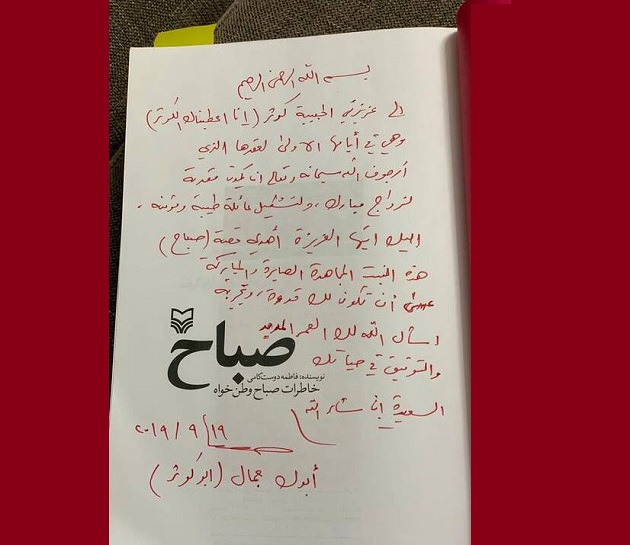 بسم الله الرحمن الرحيم
الى عزيزتي الحبيبة كوثر (إنا اعطيناك الكوثر)
وهي في أيامها الاولى لعقدها الذي
أرجو الله سبحانه وتعالى ان يكون مقدمة
لزواج مبارك ولتشكيل عائلة طيبة ومؤمنه.
اليك ايتها العزيزة أهدي قصة (صباح)
هذه البنت المجاهدة الصابرة والمباركة
عسى أن تكون لك قدوة وتجربة
اسأل الله لك العمر المديد
والتوفيق في حياتك
السعيدة إنشاء الله
صباح
نویسنده: فاطمه دوست‌کامی
خاطرات صباح وطن‌خواه
٢٠١٩/٩/١٩
أبوك جمال (ابو كوثر)